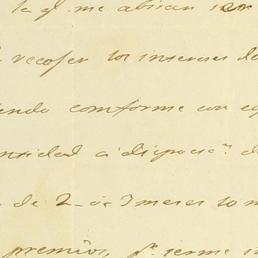 la ql. me abisan
recojer los intereses de
endo comforme con
antidad a dispocicn. d
de 2 a 3 meses
premios, pr. serme